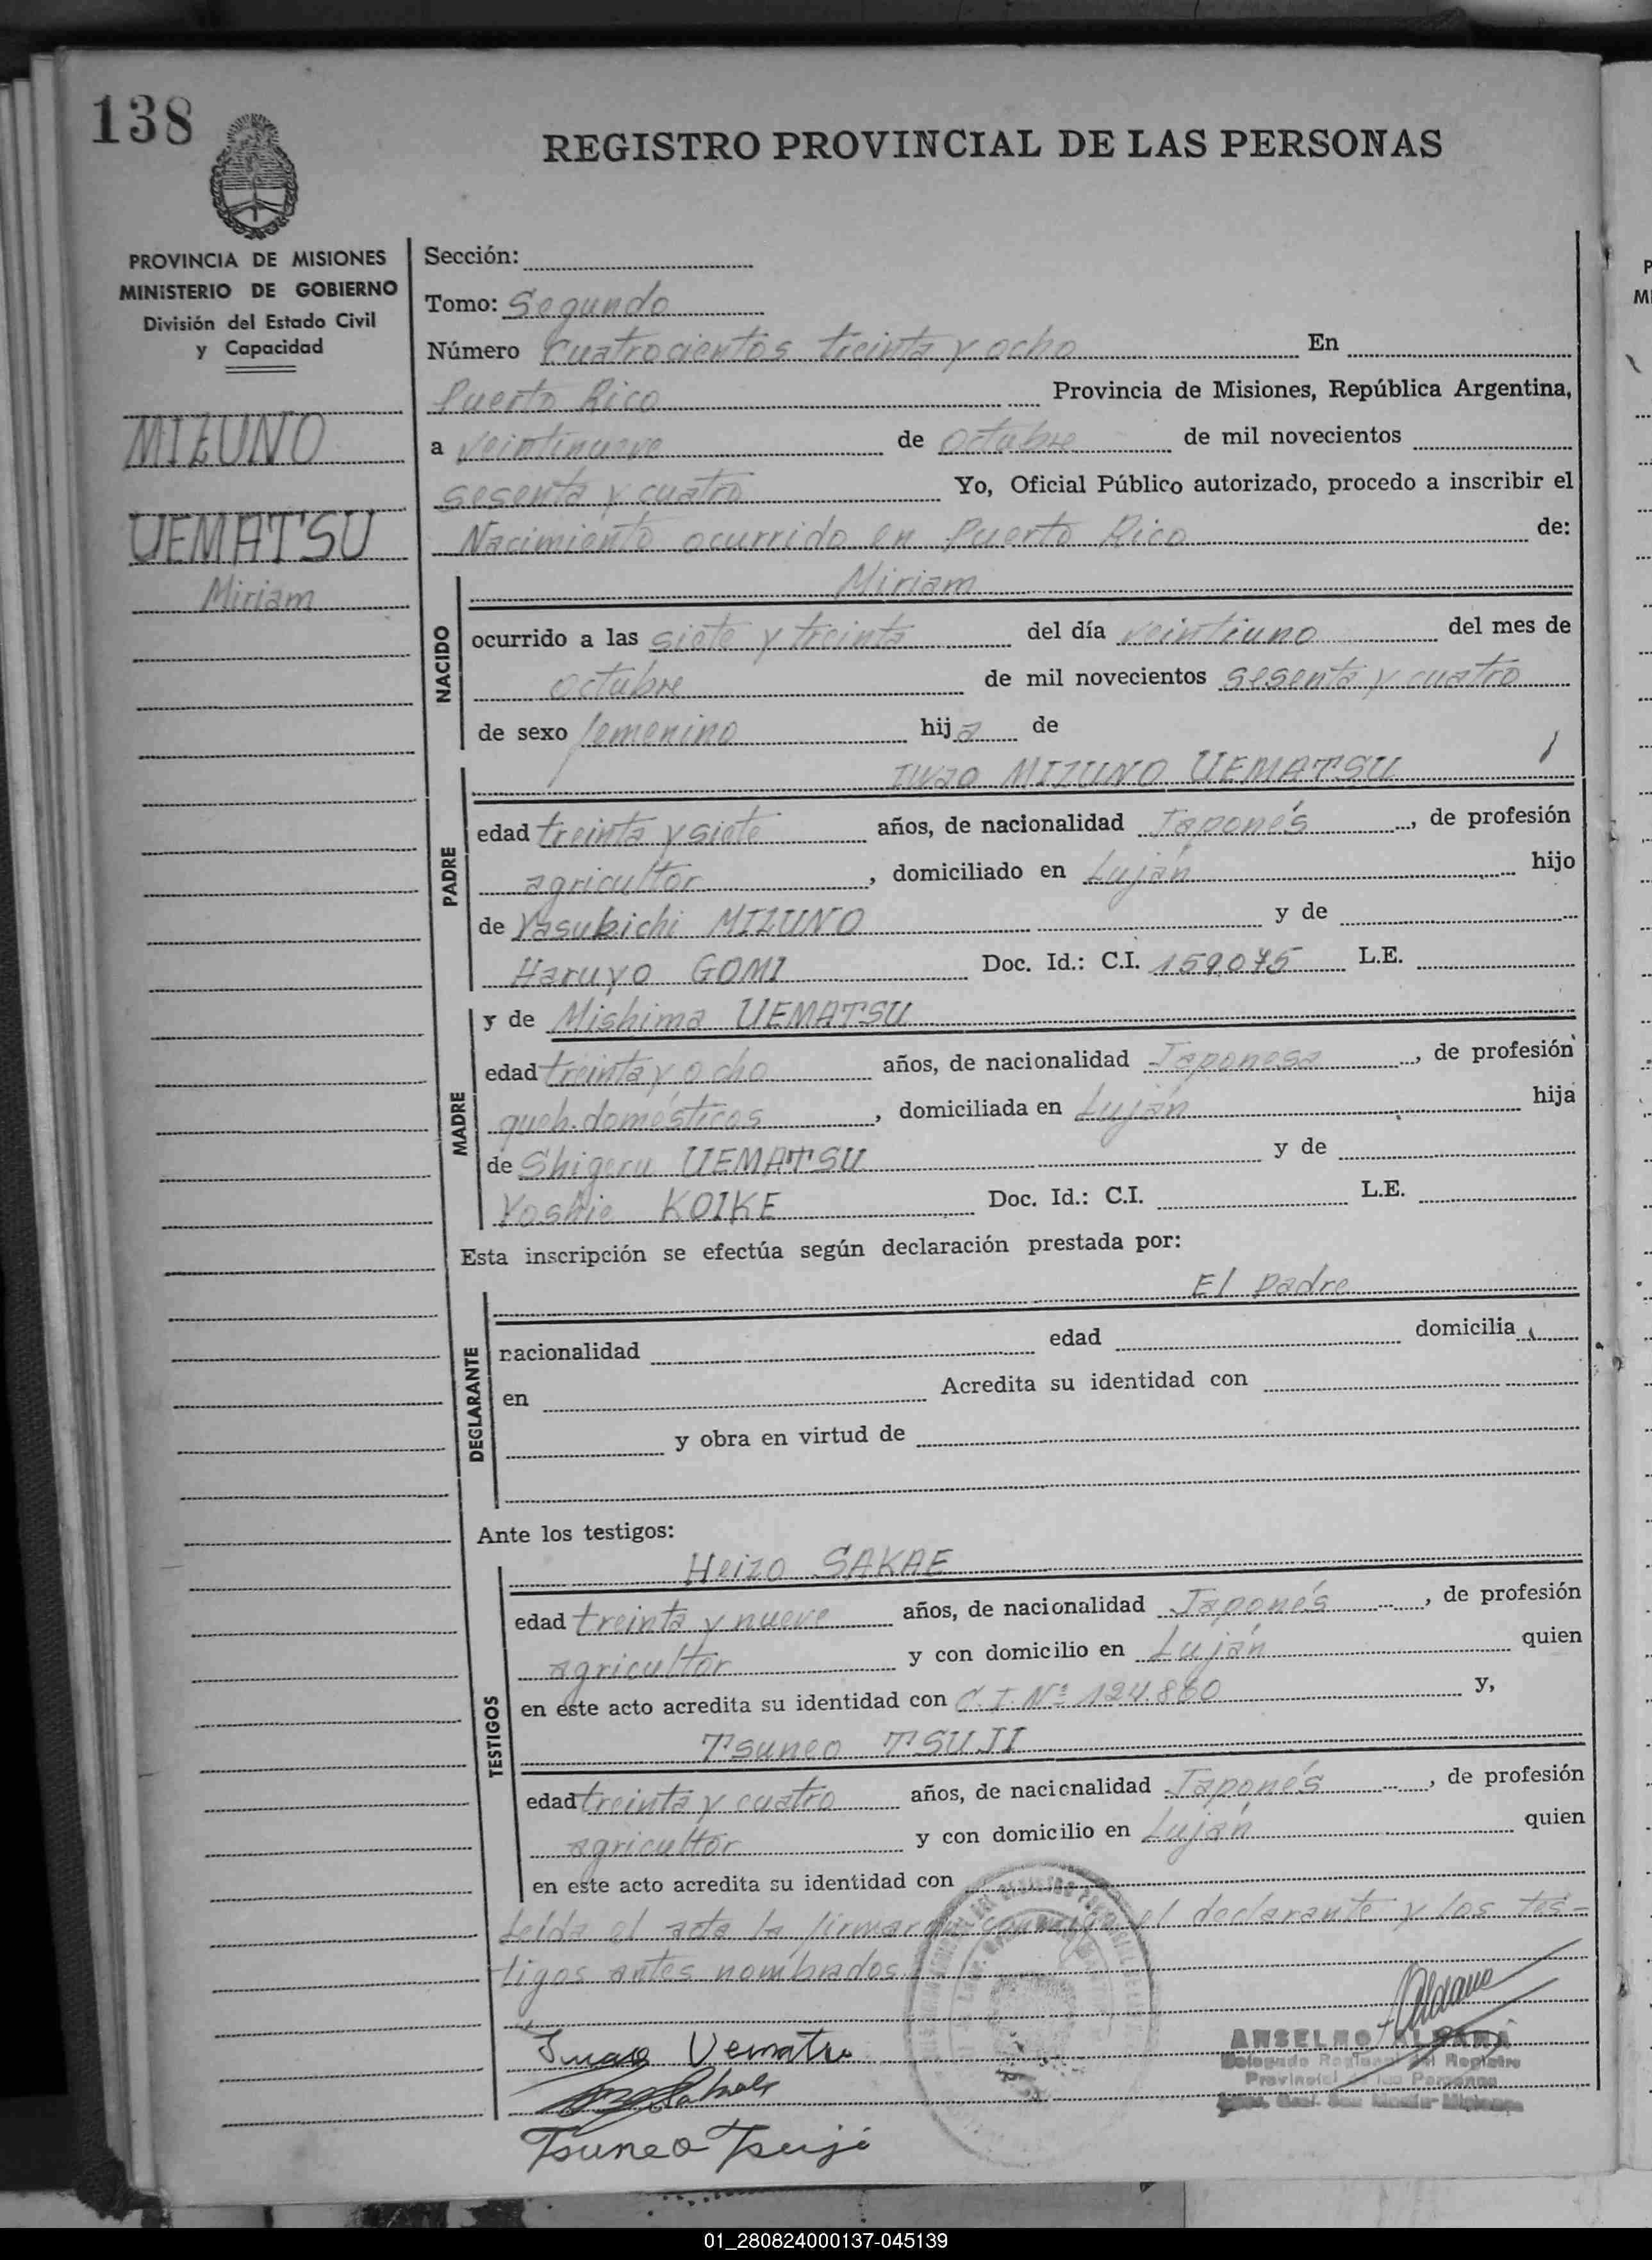 138
REGISTRO PROVINCIAL DE LAS PERSONAS
PROVINCIA DE MISIONES
MINISTERIO DE GOBIERNO
División del Estado Civil
y Capacidad
MIZUNO
UEMATSU
Miriam
Sección:
Tomo: Segundo
Número Cuatrocientos treinta y ocho En
Puerto Rico Provincia de Misiones, República Argentina,
a veintinueve de octubre de mil novecientos
sesenta y cuatro Yo, Oficial Público autorizado, procedo a inscribir el
Nacimiento ocurrido en Puerto Rico de:
NACIDO
Miriam
ocurrido a las siete y treinta del día veintiuno del mes de
octubre de mil novecientos sesenta y cuatro
de sexo femenino hija de
PADRE
Iwao MIZUNO UEMATSU
edad treinta y siete años, de nacionalidad Japonés, de profesión
agricultor, domiciliado en Luján hijo
de Yasukichi MIZUNO y de
Haruyo GOMI Doc. Id.: C.I. 159.075 L.E.
MADRE
y de Mishima UEMATSU
edad treinta y ocho años, de nacionalidad Japonesa, de profesión
queh. domésticos, domiciliada en Luján hija
de Shigeru UEMATSU y de
Yoshie KOIKE Doc. Id.: C.I. L.E.
Esta inscripción se efectúa según declaración prestada por:
DECLARANTE
El padre
nacionalidad edad domicilia
en Acredita su identidad con
y obra en virtud de
Ante los testigos:
TESTIGOS
Heizo SAKAE
edad treinta y nueve años, de nacionalidad Japonés, de profesión
agricultor y con domicilio en Luján quien
en este acto acredita su identidad con C.I. Nº 124.860 y,
Tsuneo TSUJI
edad treinta y cuatro años, de nacionalidad Japonés, de profesión
agricultor y con domicilio en Luján quien
en este acto acredita su identidad con
Leída el acta la firmaron conmigo el declarante y los tes-
tigos antes nombrados.
Iwao Uematsu
Tsuneo Tsuji
ANSELMO ALDANA
Delegado Regional del Registro
Provincial de las Personas
01_280824000137-045139